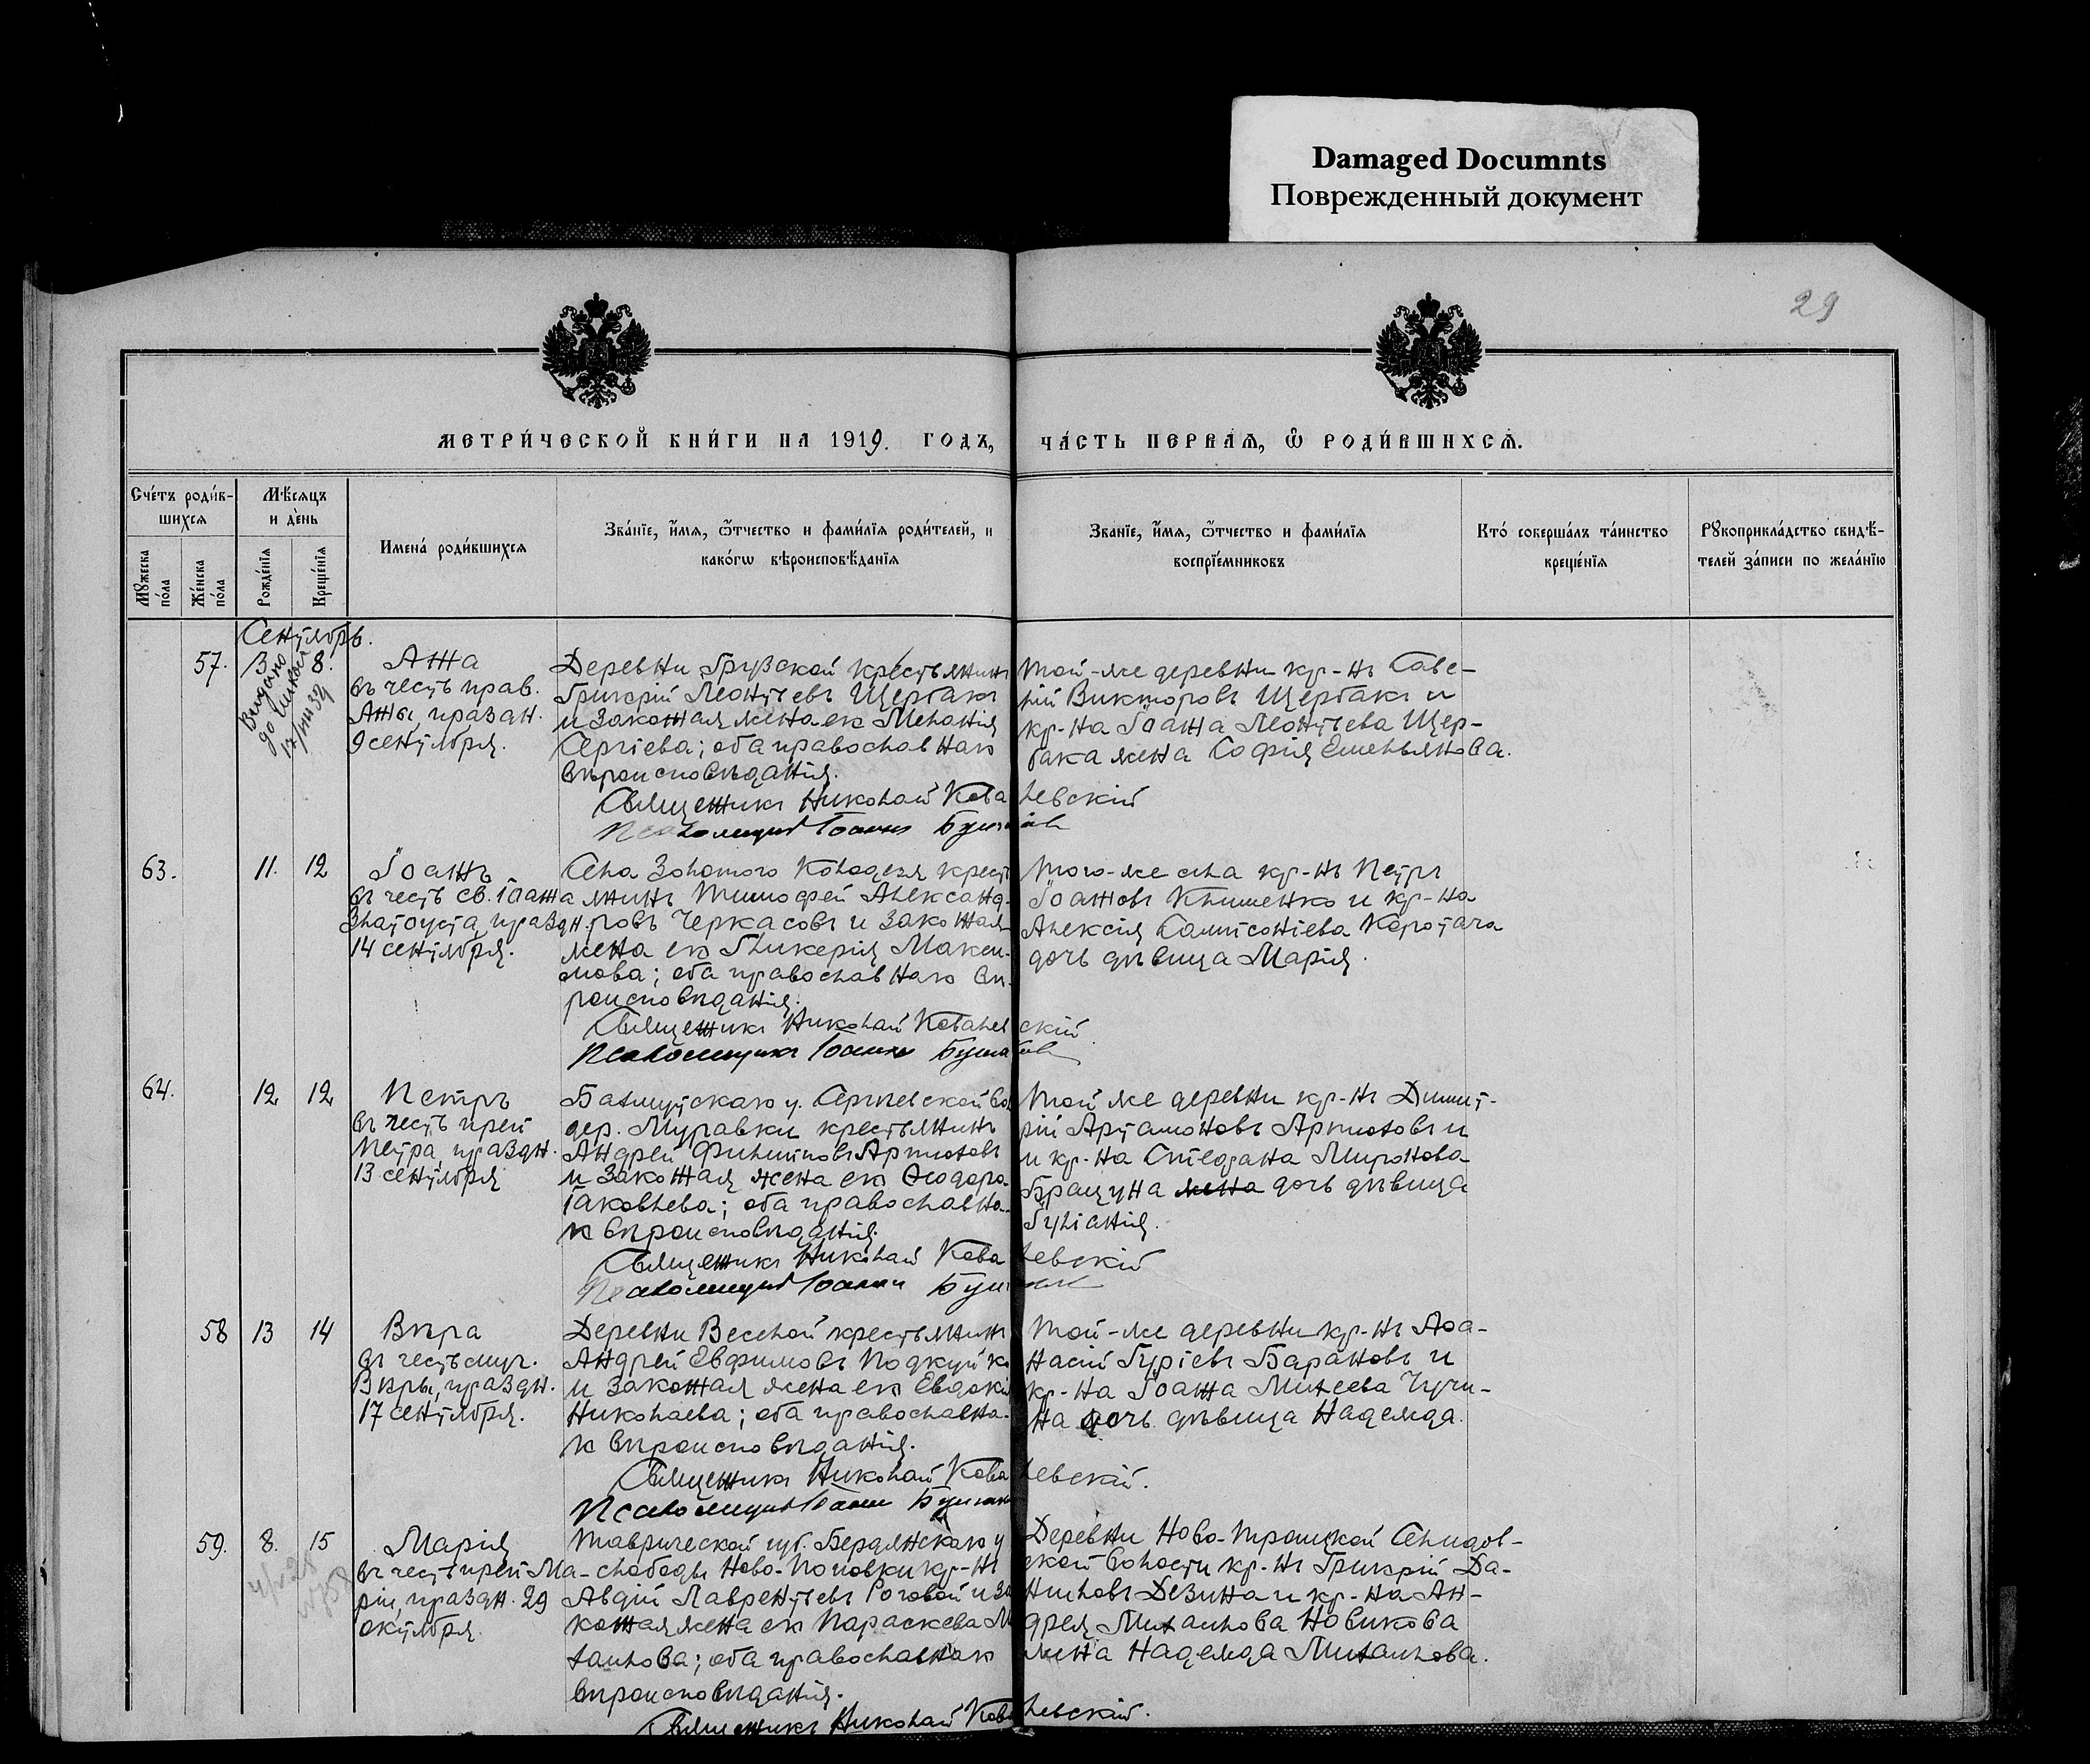 Damaged Documnts
Поврежденный документ
29
МЕТРИ́ЧЕСКОЙ КНИ́ГИ НА 1919. ГОДЪ, ЧА́СТЬ ПЕРВАѦ, Ѽ РОДИ́ВШИХСѦ.
Сче́тъ роди́в-
шихсѧ
Мѣ́сяцъ
и де́нь
Имена́ роди́вшихсѧ
Зва́нїе, и́мѧ, ѻ҆́тчество и фами́лїѧ роди́телей, и
како́гѡ вѣроисповѣ́данїѧ
Зва́нїе, и́мѧ, ѻ҆́тчество и фами́лїѧ
воспрїе́мниковъ
Кто́ соверша́лъ та́инство
креще́нїѧ
Рꙋкоприкла́дство свидѣ́-
телей за́писи по жела́нїю
Мꙋ́жеска
по́ла
Же́нска
по́ла
Рожде́нїѧ
Креще́нїѧ
Сентябрь.
57.
3.
8.
Выдано
Анна
въ честь прав.
Анны, праздн.
9 сентября.
Деревни Грузской крестьянинъ
Григорій Леонтьевъ Щербакъ
и законная жена его Меланія
Сергіева; оба православнаго
вѣроисповѣданія.
Той-же деревни кр-нъ Саве-
лій Викторовъ Щербакъ и
кр-на Іоанна Леонтьева Щер-
бака жена Софія Емельянова.
Священникъ Николай Ковалевскій
Псаломщикъ Іоаннъ
63.
11.
12
Іоаннъ
въ честь св. Іоанна
Златоуста, праздн.
14 сентября.
Села Золотого Колодезя крест
янинъ Тимофей Александ-
ровъ Черкасовъ и законная
жена его Гликерія Макси-
мова; оба православнаго вѣ-
роисповѣданія.
Того-же села кр-нъ Петръ
Іоанновъ Клименко и кр-на
Алексія Сампсоніева Коротача
дочь дѣвица Марія.
Священникъ Николай Ковалевскій
Псаломщикъ Іоаннъ
64.
12
12
Петръ
въ честь преп
Петра, праздн.
13 сентября
Бахмутскаго у. Сергіевской вол
дер. Муравки крестьянинъ
Андрей Филипповъ Артюховъ
и законная жена его Ѳеодора
Іаковлева; оба православна-
го вѣроисповѣданія.
Той же деревни кр-нъ Димит-
рій Артамоновъ Артюховъ и
и кр-на Стефана Миронова
Брацуна жена дочь дѣвица
Іуліанія.
Священникъ Николай Ковалевскій
Псаломщикъ Іоаннъ
58
13
14
Вѣра
въ честь муч.
Вѣры, праздн.
17 сентября.
Деревни Веселой крестьянинъ
Андрей Евфимовъ Подкуйко
и законная жена его Евдокія
Николаева; оба православна-
го вѣроисповѣданія.
Той-же деревни кр-нъ Аѳа-
насій Гуріевъ Барановъ и
кр-на Іоанна Михеева Чучи-
на дочь дѣвица Надежда.
Священникъ Николай Ковалевскій.
Псаломщикъ Іоаннъ
59.
8.
15
Марія
въ честь преп Ма-
ріи, праздн. 29
октября.
Таврической губ. Бердянскаго у
слободы Ново-Поповки кр-нъ
Авдій Лаврентьевъ Роговой и за
конная жена его Параскева Ми
хаилова; оба православнаго
вѣроисповѣданія.
Деревни Ново-Троицкой
ской волости кр-нъ Григорій Да-
ниловъ Дезина и кр-на Ан-
дрея Михаилова Новикова
жена Надежда Михаилова.
Священникъ Николай Ковалевскій.